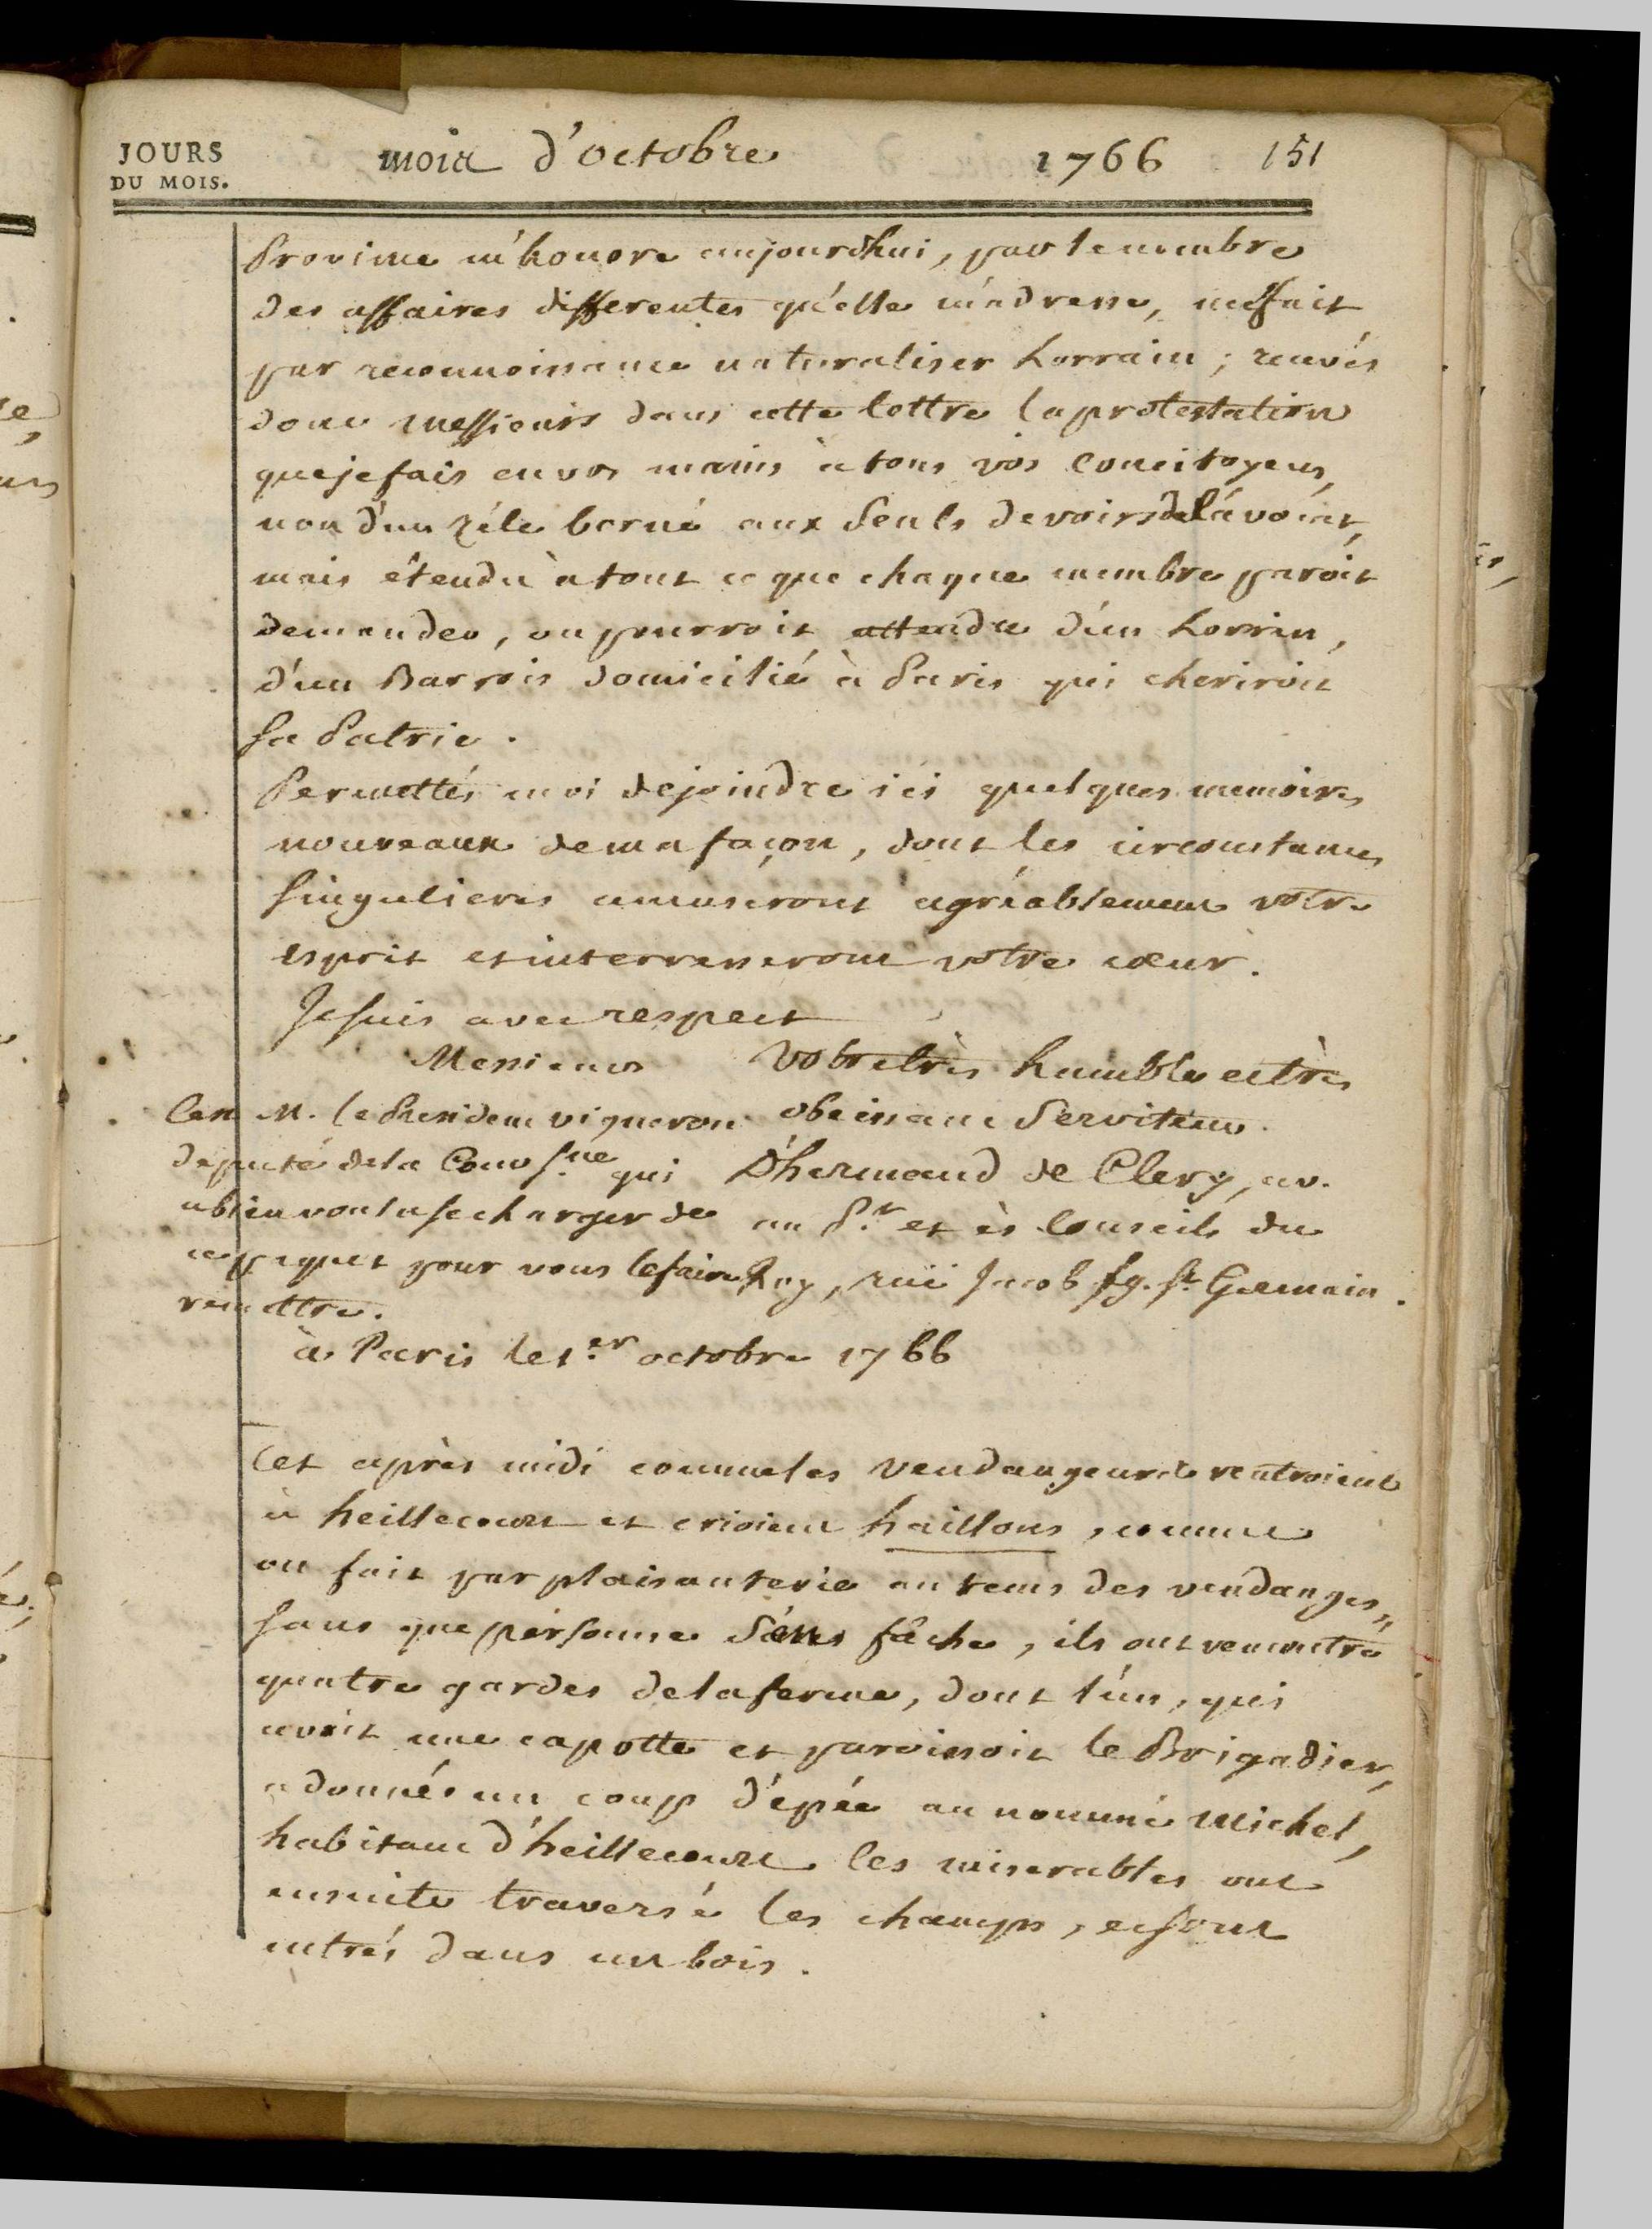 JOURS
DU MOIS.
mois d'octobre 1766 151
Province m'honore aujourdhui, par le nombre
des affaires differentes qu'elle m'adresse, me fait
par reconnoissance naturaliser Lorrain ; recevés
donc Messieurs dans cette lettre la protestation
que je fais en vos mains à tous vos concitoyens,
non d'un zéle borné aux seuls devoirs de l'avocat,
mais êtendu à tout ce que chaque membre paroit
demander, ou pourroit attendre d'un Lorrin,
d'un Barrois domicilié à Paris qui cheriroit
sa Patrie.
Permettés moi de joindre ici quelques memoires
nouveaux de ma façon, dont les circonstances
singulieres amuseront agréablement votre
esprit et interresseront votre cœur.
Je suis avec respect
Messieurs Votre très humble et très
obeissant Serviteur.
D'hermand de Clery, av.
au P.r et ès Conseils du
Roy, ruë Jacob fg. St Germain.
C'est M. le President vigneron
député de la Cour sne qui
a bien voulu se charger de
ce paquet pour vous le faire
remettre.
à Paris le 1.er octobre 1766
Cet après midi comme les vendangeurs rentroient
à heillecourt et crioient haillons, comme
on fait par plaisanterie au tems des vendanges,
sans que personne s'en fâche, ils ont rencontré
quatre gardes de la ferme, dont l'un, qui
avoit une capotte et paroissoit le Brigadier,
a donnés un coup d'épée au nommé Michel,
habitant d'heillecourt les miserables ont
ensuite traversé les champs, et sont
entrés dans un bois.